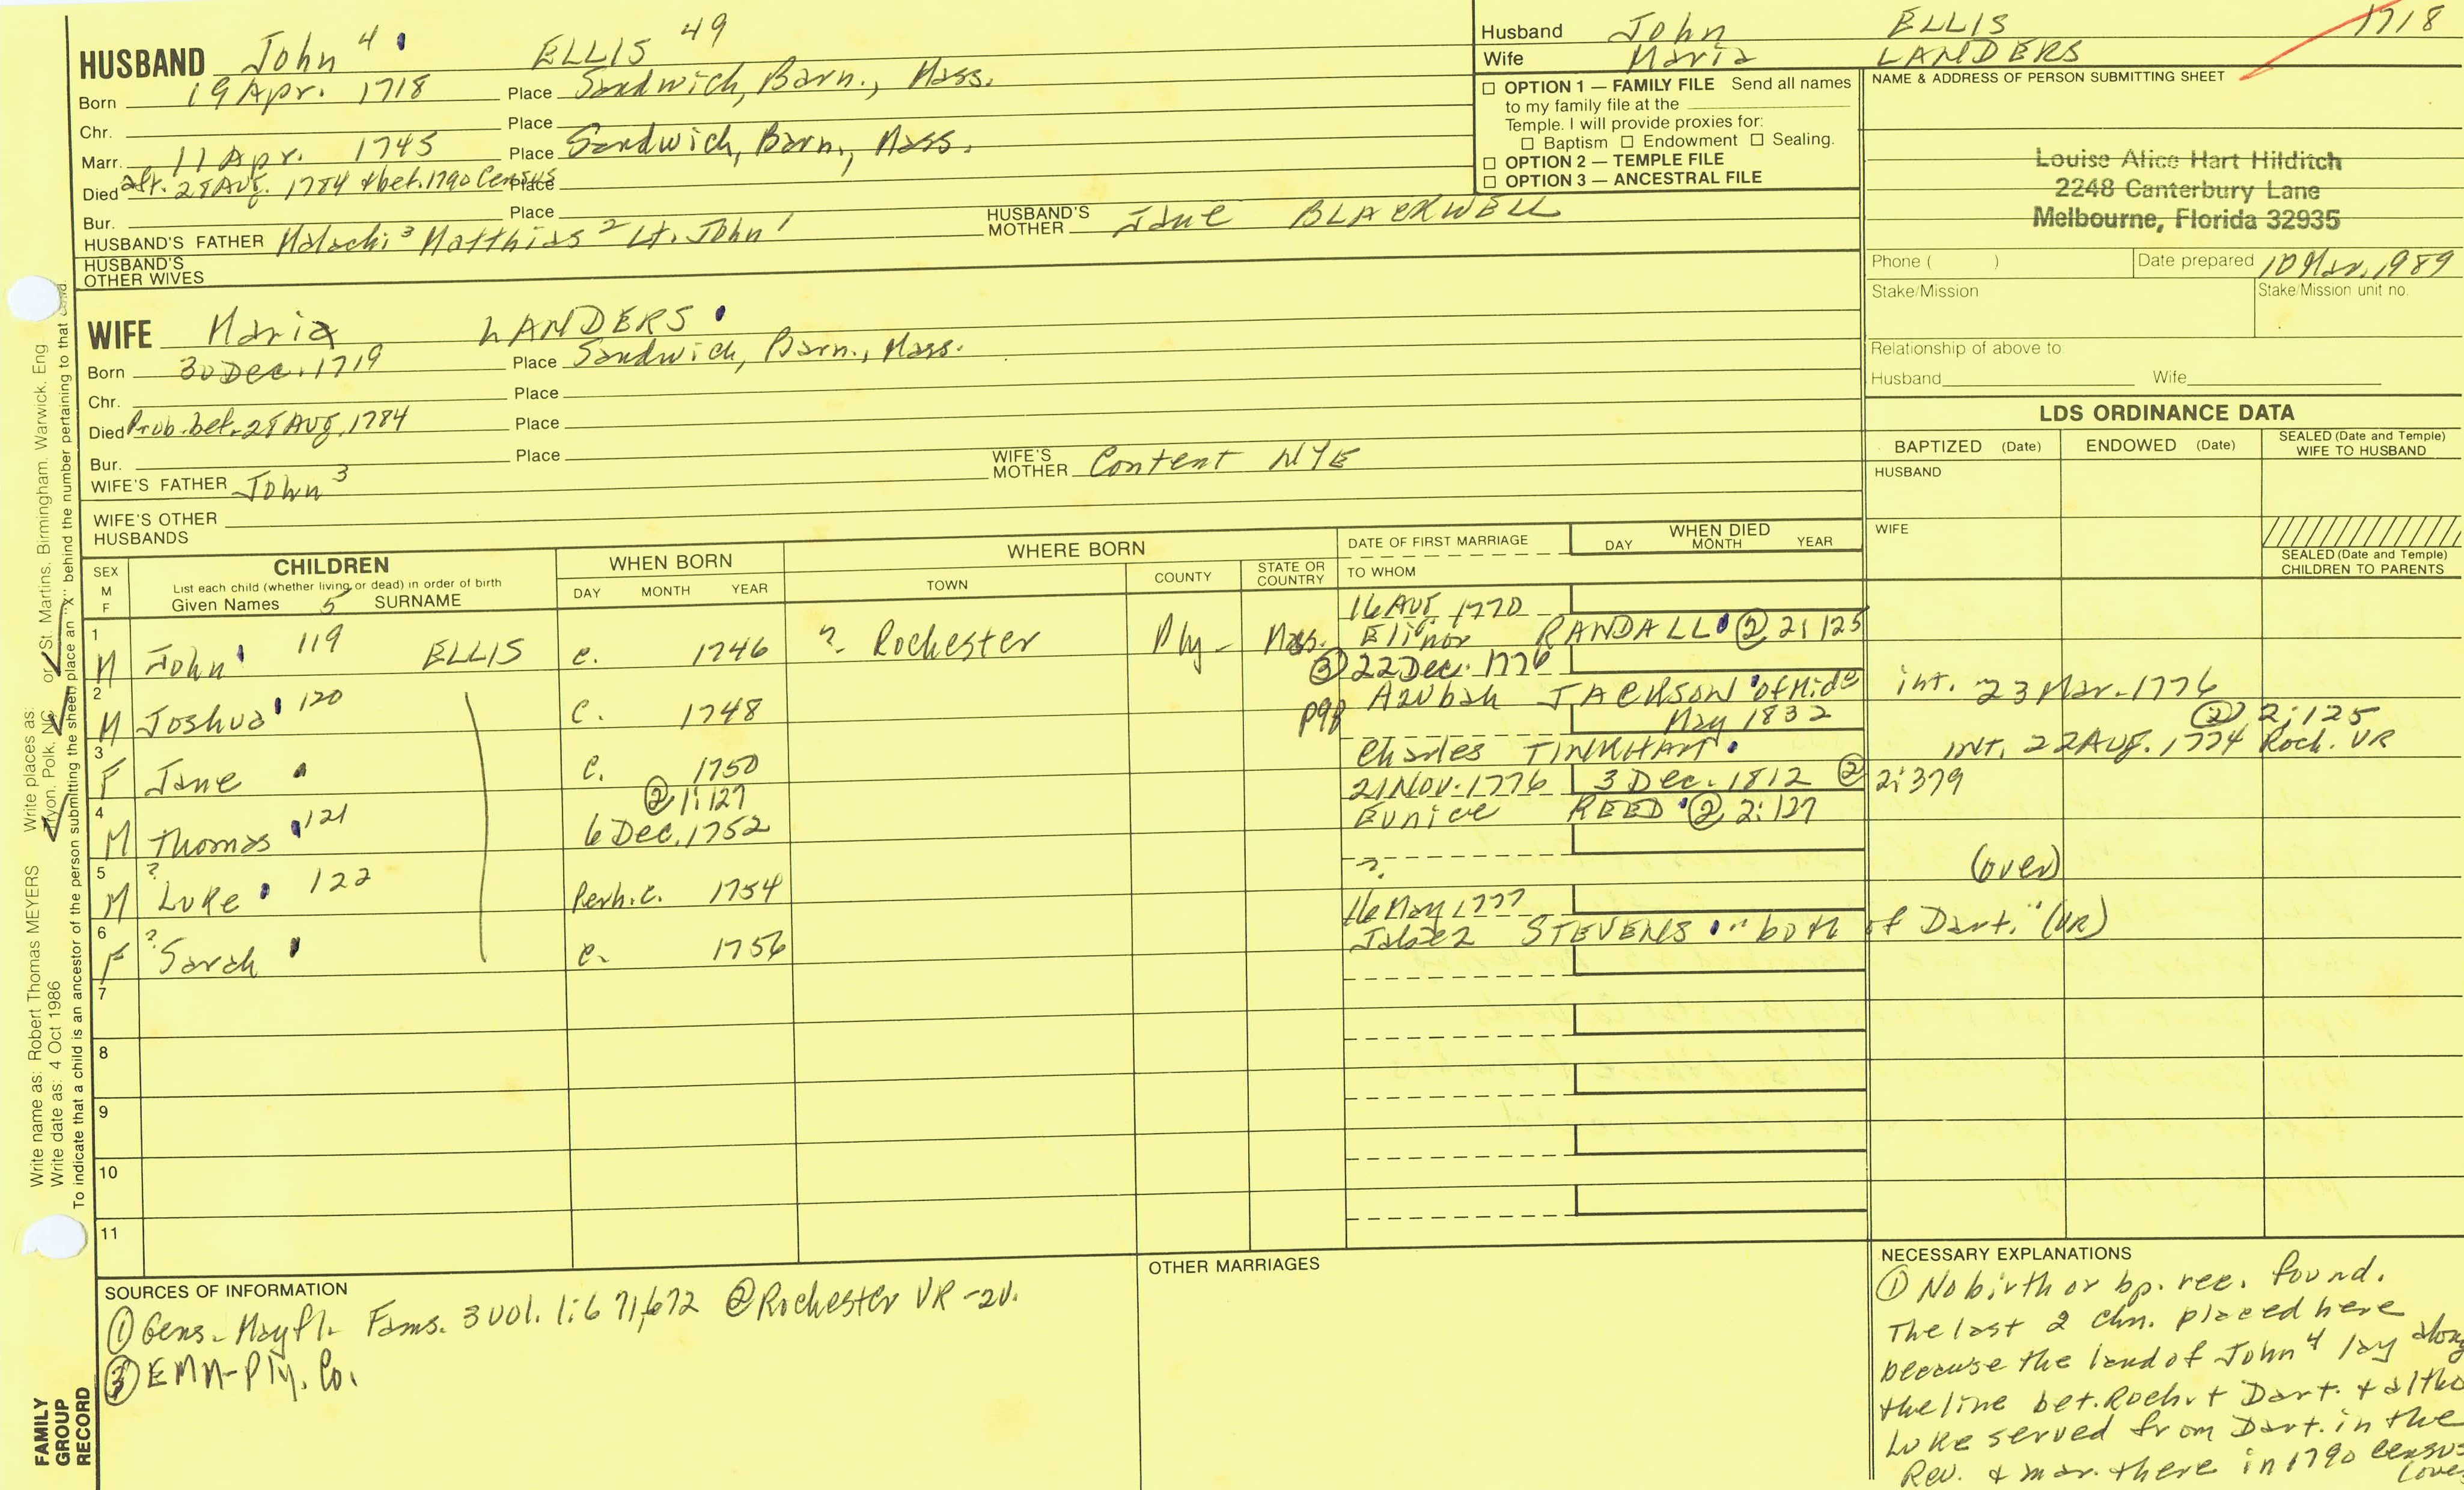 HUSBAND John 4 ELLIS 49
Born 19 Apr. 1718 Place Sandwich, Barn., Mass.
Chr. Place
Marr. 11 Apr. 1745 Place Sandwich, Barn., Mass.
Died aft. 28 Aug. 1784 & bef. 1790 Census Place
Bur. Place
HUSBAND'S FATHER Malachi 3 Matthias 2 Lt. John 1 HUSBAND'S MOTHER Jane BLACKWELL
HUSBAND'S OTHER WIVES
Husband John ELLIS 1718
Wife Maria LANDERS
☐ OPTION 1 — FAMILY FILE Send all names
to my family file at the
Temple. I will provide proxies for:
☐ Baptism ☐ Endowment ☐ Sealing.
☐ OPTION 2 — TEMPLE FILE
☐ OPTION 3 — ANCESTRAL FILE
NAME & ADDRESS OF PERSON SUBMITTING SHEET
Louise Alice Hart Hilditch
2248 Canterbury Lane
Melbourne, Florida 32935
Phone ( ) Date prepared 10 Mar. 1989
Stake/Mission Stake/Mission unit no.
Relationship of above to
Husband Wife
WIFE Maria LANDERS
Born 30 Dec. 1719 Place Sandwich, Barn., Mass.
Chr. Place
Died Prob. bef. 28 Aug. 1784 Place
Bur. Place
WIFE'S FATHER John 3 WIFE'S MOTHER Content NYE
WIFE'S OTHER HUSBANDS
LDS ORDINANCE DATA
BAPTIZED (Date) ENDOWED (Date) SEALED (Date and Temple) WIFE TO HUSBAND
HUSBAND
WIFE
SEALED (Date and Temple) CHILDREN TO PARENTS
SEX M F CHILDREN List each child (whether living or dead) in order of birth Given Names 5 SURNAME
WHEN BORN DAY MONTH YEAR
WHERE BORN TOWN COUNTY STATE OR COUNTRY
DATE OF FIRST MARRIAGE TO WHOM
WHEN DIED DAY MONTH YEAR
16 Aug 1770
1 M John 119 ELLIS c. 1746 ? Rochester Ply- Mass. Elinor RANDALL ② 2:125
③ 22 Dec. 1776
2 M Joshua 120 c. 1748 p98 Azubah JACKSON of Midd int. 23 Mar. 1776
② 2:125
May 1832
3 F Jane c. 1750 Charles TINKHAM int. 22 Aug. 1774 Roch. VR
② 1:127 21 Nov. 1776 3 Dec. 1812 ② 2:379
4 M Thomas 121 6 Dec. 1752 Eunice REED ② 2:127
5 M ? Luke 122 Perh. c. 1754 ? (over)
16 May 1777
6 F ? Sarah c. 1756 Jabez STEVENS "both of Dart." (VR)
7
8
9
10
11
SOURCES OF INFORMATION
① Gens. Mayfl. Fams. 3 vol. 1:671,672 ② Rochester VR - 2v.
③ EMM - Ply. Co.
OTHER MARRIAGES
NECESSARY EXPLANATIONS
① No birth or bp. rec. found.
The last 2 chn. placed here
because the land of John 4 lay along
the line bet. Roch. & Dart. & altho
Luke served from Dart. in the
Rev. & mar. there in 1790 Census
(over
Write name as: Robert Thomas MEYERS Write places as: Tryon, Polk, NC or St. Martins, Birmingham, Warwick, Eng
Write date as: 4 Oct 1986
To indicate that a child is an ancestor of the person submitting the sheet place an "X" behind the number pertaining to that child.
FAMILY
GROUP
RECORD